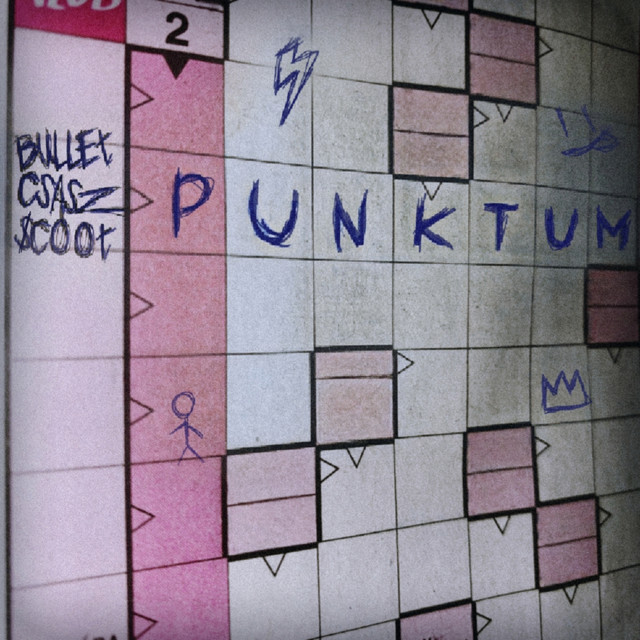 2
BULLET
CSASZ
SCOOT
PUNKTUM